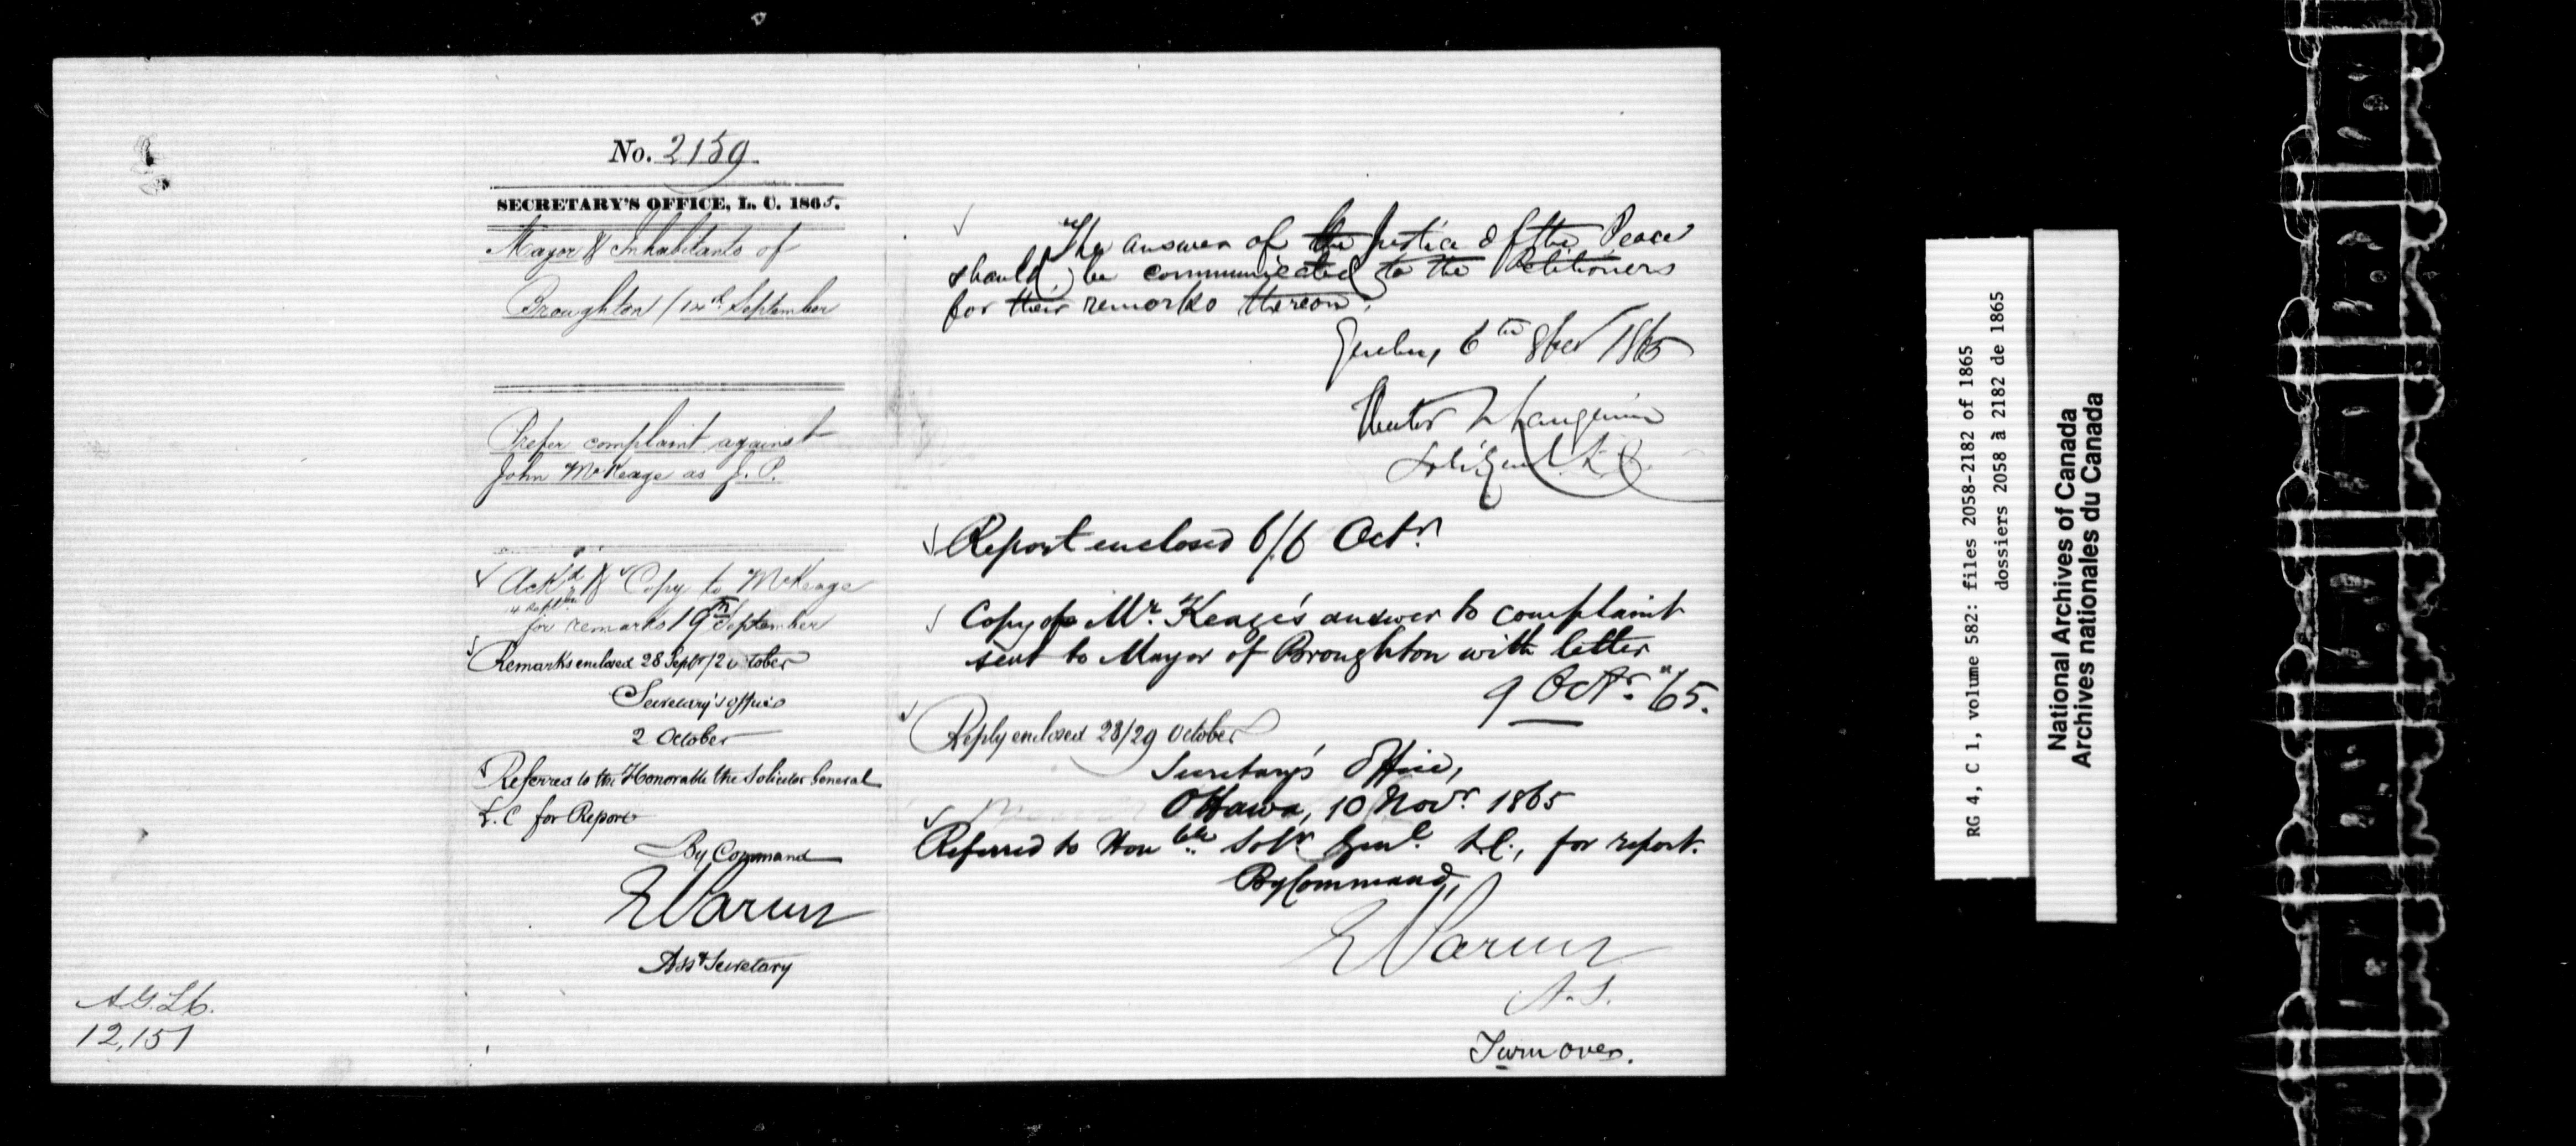 No. 2159.
SECRETARY'S OFFICE, L. C. 1865.
Mayor & Inhabitants of
Broughton / September
Prefer complaint against
John McKeage as J. P.
Ackd & Copy to McKeage
for remarks 19th September
Remarks enclosed 28 Septr/2 October
Secretary's office
2 October
Referred to the Honorable the Solicitor General
L. C for Report
By Command
Asst Secretary
A.G.L.C.
12,151
The answer of the Justice of the Peace
should be communicated to the Petitioners
for their remarks thereon.
Quebec, 6th 8ber 1865
Hector L Langevin
Sol. Genl. L.C.
Report enclosed 6/6 Octr.
Copy of Mr. Keage's answer to complaint
sent to Mayor of Broughton with letter
9 Octr. "65.
Reply enclosed 28/29 October
Secretary's Office,
Ottawa, 10 Novr. 1865
Referred to Honble Solr. Genl. L.C., for report.
By Command,
A. S.
Turn over.
RG 4, C 1, volume 582: files 2058-2182 of 1865
dossiers 2058 à 2182 de 1865
National Archives of Canada
Archives nationales du Canada